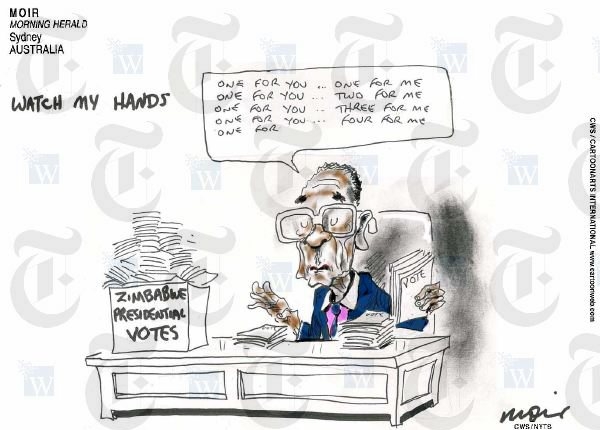 MOIR
MORNING HERALD
Sydney
AUSTRALIA
WATCH MY HANDS
ONE FOR YOU .. ONE FOR ME
ONE FOR YOU ... TWO FOR ME
ONE FOR YOU ... THREE FOR ME
ONE FOR YOU ... FOUR FOR ME
ONE FOR
ZIMBABWE
PRESIDENTIAL
VOTES
VOTE
VOTE
moir
CWS/NYTS
CWS / CARTOONARTS INTERNATIONAL www.cartoonweb.com